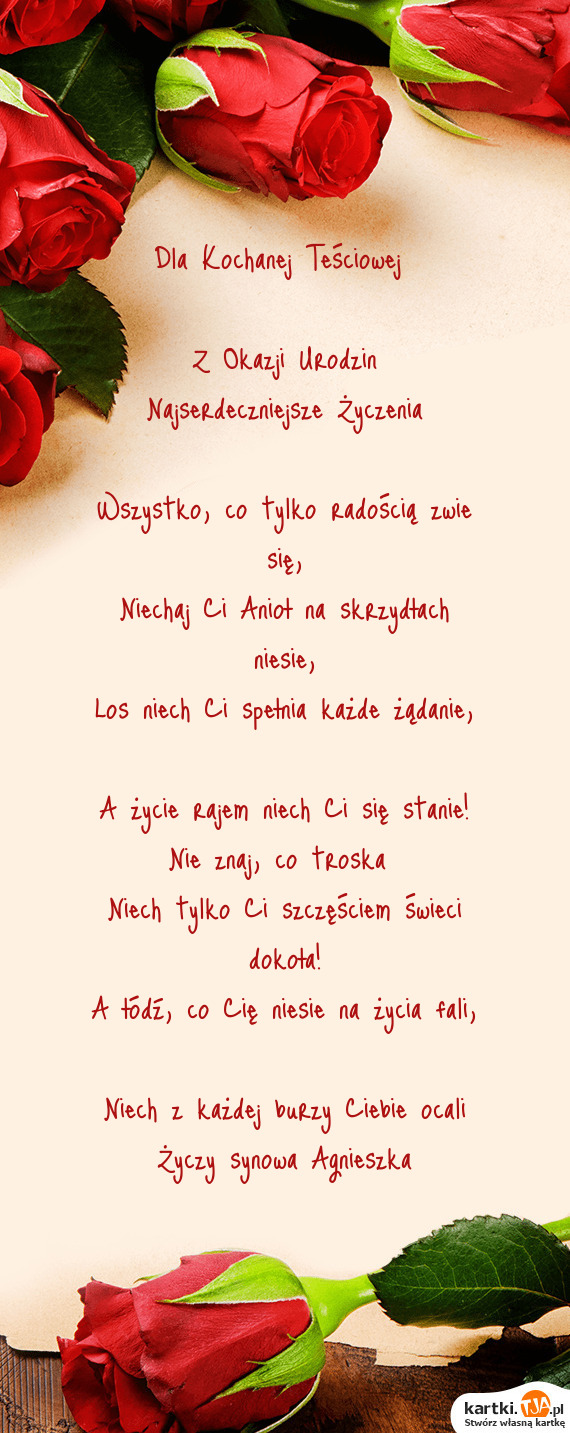 Dla Kochanej Teściowej
Z Okazji Urodzin
Najserdeczniejsze Życzenia
Wszystko, co tylko radością zwie
się,
Niechaj Ci Anioł na skrzydłach
niesie,
Los niech Ci spełnia każde żądanie,
A życie rajem niech Ci się stanie!
Nie znaj, co troska
Niech tylko Ci szczęściem świeci
dokoła!
A łódź, co Cię niesie na życia fali,
Niech z każdej burzy Ciebie ocali
Życzy synowa Agnieszka
kartki.TJA.pl
Stwórz własną kartkę